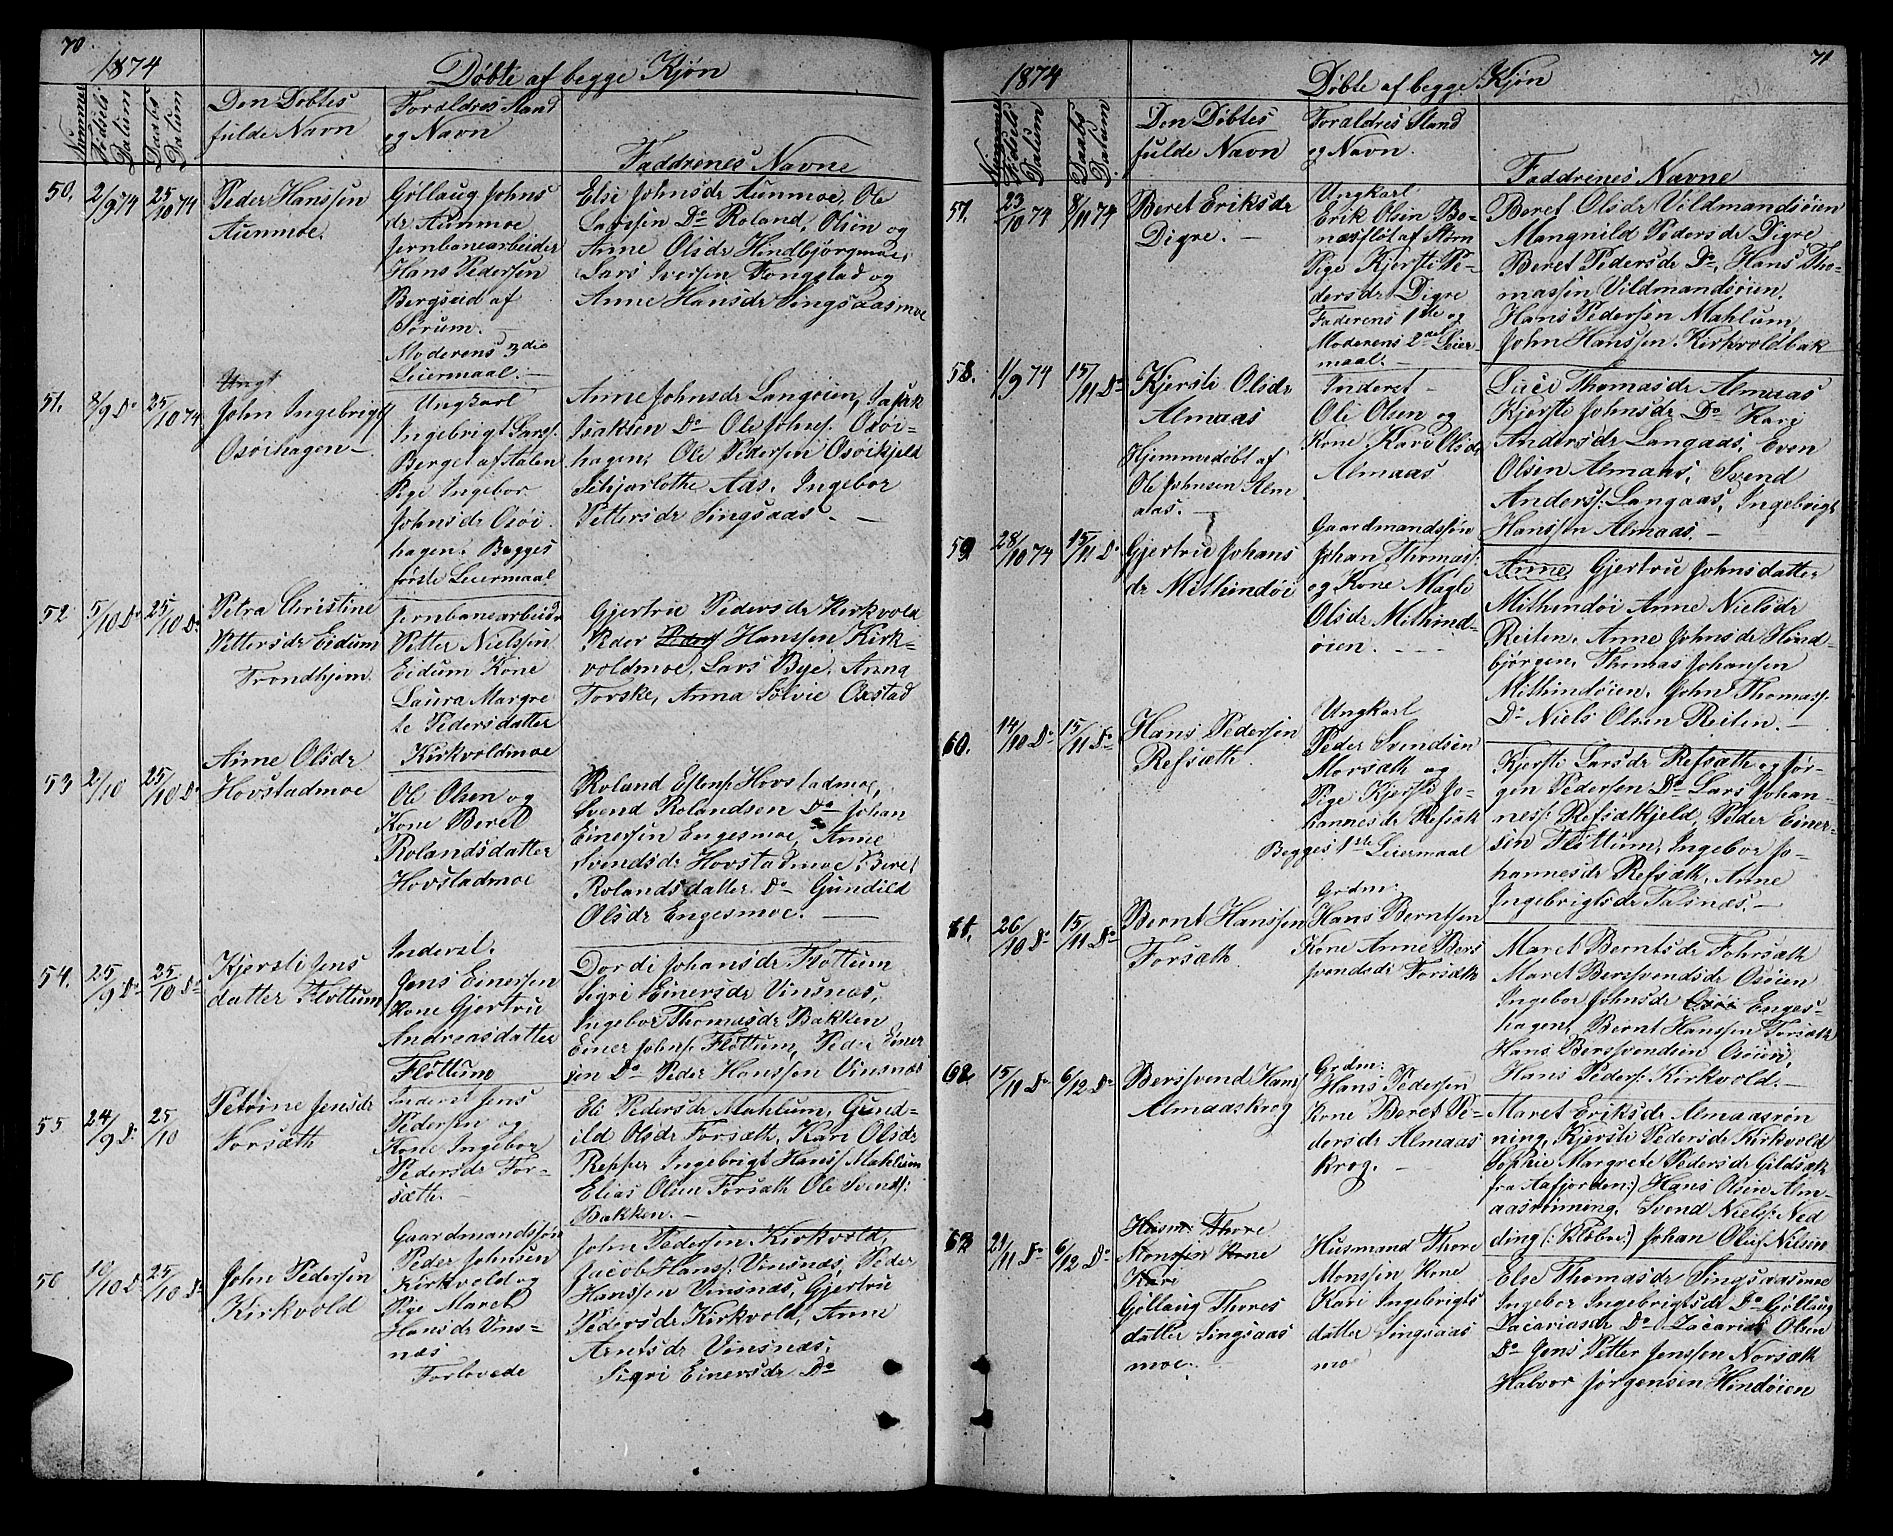 70.
1874
Døbte af begge Kjøn
Nummer
Fødsels Datum
Daabs Datum
Den Døbtes
fulde Navn
Foraldres Stand
og Navn
Faddrenes Navne
50.
2/9 74
25/10 74
Peder Hanssen
Aunmoe.
Gøllaug Johns
dr Aunmoe
Jernbanearbeider
Hans Pedersen
Bergseid af
Sørum.
Moderens 3die
Leiermaal.
Elsi Johnsdr Aunmoe, Ole
Larssen Do Roland, Olsen og
Anne Olsdr Hindbjørgmoe,
Lars Iversen Tongstad og
Anne Hansdr Singsaasmoe
51.
8/9 Do
25/10 74
Ungt
John Ingebrigts
Osøihagen
Ungkarl
Ingebrigt Larss.
Berget af Aalen
Pige Ingebor
Johnsdr Osøi
hagen. Begges
første Leiermaal
Anne Johnsdr Langøien, Isak
Isaksen Do Ole Johns. Osøi-
hagen, Ole Pedersen Osøikjeld
Schjarlothe Aas, Ingebor
Pettersdr Singsaas.
52
5/10 Do
25/10 Do
Petra Christine
Pettersdr Eidum
Trondhjem.
Jernbanearbeider
Petter Nielssen
Eidum Kone
Laura Margre
te Pedersdatter
Kirkvoldmoe
Gjertru Pedersdr Kirkvold
Peder Peders Hanssen Kirk-
voldmoe, Lars Bye, Anna
Torske, Anna Sølvie Oxstad
53
2/10
25/10 Do
Anne Olsdr
Hovstadmoe
Ole Olsen og
Kone Beret
Rolandsdatter
Hovstadmoe
Roland Estens. Hovstadmoe,
Svend Rolandsen Do Johan
Einerssen Engesmoe, Anne
Svendsdr Hovstadmoe, Beret
Rolandsdatter Do Gunild
Olsdr Engesmoe.
54.
25/9 Do
25/10 Do
Kjersti Jens
datter Fløttum
Inderst.
Jens Einersen
Kone Gjertru
Andreasdatter
Fløttum
Dordi Johansdr Fløttum
Sigri Einersdr Vinsnæs,
Ingebor Thomasdr Bakken
Einer Johns. Fløttum, Peder Einer
sen Do Peder Hanssen Vinsnæs
55
24/9 Do
25/10
Petrine Jensdr
Forsæth
Inderst Jens
Pedersen og
Kone Ingebor
Pedersdr For-
sæth.
Eli Pedersdr Mahlum, Gund-
ild Olsdr Forsæth, Kari Olsdr
Repper Ingebrigt Hanss. Mahlum
Elias Olsen Forsæth Ole Svends.
Bakken.
56
10/10 Do
25/10 Do
John Pedersen
Kirkvold
Gaardmandssøn
Peder Johnsen
Kirkvold og
Pige Maret
Hansdr Vins-
næs
Forlovede
John Pedersen Kirkvold,
Jacob Hanss. Vinsnæs, Peder
Hanssen Vinsnæs, Gjertru
Pedersdr Kirkvold, Anne
Arntsdr Vinsnæs,
Sigri Einersdr Do
71
1874
Døbte af begge Kjøn
Nummer
Fødsels Datum
Daabs Datum
Den Døbtes
fulde Navn
Foraldres Stand
og Navn.
Faddrenes Navne
57.
23/10 74
8/11 74
Beret Eriksdr
Digre.
Ungkarl
Erik Olsen Bo-
næsfløt af Støren
Pige Kjersti Pe-
dersdr Digre
Faderens 1ste og
Moderens 2det Leier-
maal.
Beret Olsdr Vildmandsøien
Mangnild Pedersdr Digre
Beret Pedersdr Do, Hans Tho-
massen Vildmandøien,
Hans Pedersen Mahlum,
John Hanssen Kirkvoldbak
58.
11/9 74
15/11 Do
Kjersti Olsdr
Almaas
Hjemmedøbt af
Ole Johnsen Alm
aas.
Inderst
Ole Olsen og
Kone Kari Olsdr
Almaas
Luci Thomasdr Almaas
Kjersti Johnsdr Do Kari
Andersdr Langaas, Even
Olsen Almaas, Svend
Anders. Langaas, Ingebrigt
Hanssen Almaas.
59
28/10 74
15/11 Do
Gjertru Johans
dr Mithindøi
Gaardmandssøn
Johan Thomass.
og Kone Magli
Olsdr Mithind-
øien.
Anne Gjertru Johnsdatter
Mithindøi Anne Nielsdr
Reiten, Anne Johnsdr Hind-
bjørgen, Thomas Johansen
Mithindøien, John Thomass.
Do Niels Olsen Reiten.
60.
14/10 Do
15/11 Do
Hans Pedersen
Refsæth.
Ungkarl
Peder Svendsen
Morsæth og
Pige Kjersti Jo-
hannesdr Refsæth
Begges 1ste Leiermaal
Kjersti Larsdr Refsæth og Jør-
gen Pedersen Do Lars Johan-
ness. Refsætkjeld, Peder Einer-
sen Fløttum, Ingebor Jo-
hannesdr Refsæth, Anne
Ingebrigtsdr Talsnæs.
61.
26/10 Do
15/11 Do
Bernt Hanssen
Forsæth
Grdm:
Hans Berntsen
Kone Anne Bers
vendsdr Forsæth
Maret Berntsdr Fohrsæth
Maret Bersvendsdr Osøien
Ingebor Johnsdr Osøi Enges-
hagen, Bernt Hanssen Forsæth
Hans Bersvendsen Osøien,
Hans Peders. Kirkvold.
62
15/11 Do
6/12 Do
Bersvend Hans
Almaaskrog
Grdm:
Hans Pedersen
Kone Beret Pe-
dersdr Almaas
krog.
Maret Eriksdr Almaasrøn
ning, Kjersti Pedersdr Kirkvold
Sophie Margrete Pedersdr Gildsæth
fra Aafjorden:) Hans Olsen Alm-
aasrønning, Svend Niels. Ned
ding (: Klæbu:) Johan Oluf Nilsen
63
21/11 Do
6/12 Do
Husm: Thore
Monssen Kone
Kari
Gøllaug Thores
datter Singsaas
moe.
Husmand Thore
Monssen Kone
Kari Ingebrigts
datter Singsaas
mo
Else Thomasdr Singsaasmoe
Ingebor Ingebrigtsdr Do Gøllaug
Zacariasdr Do Zacarias Olsen
Do Jens Petter Jenssen Norsæth
Halvor Jørgensen Hindøien